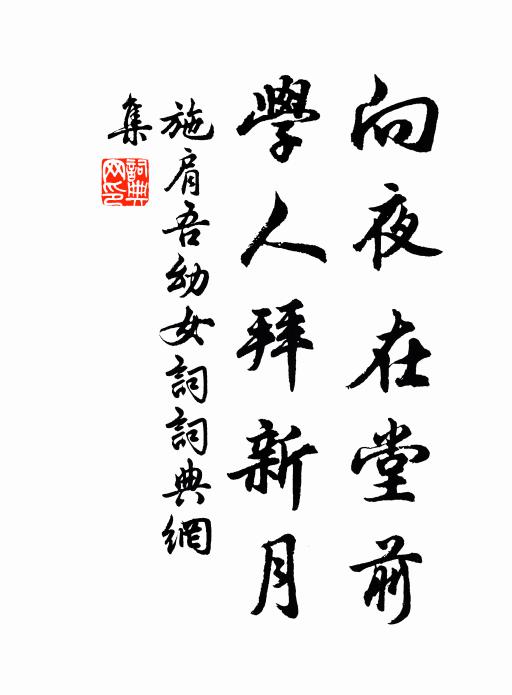 向夜在堂前
學人拜新月
施肩吾幼女詞詞典網
集
詞典網印